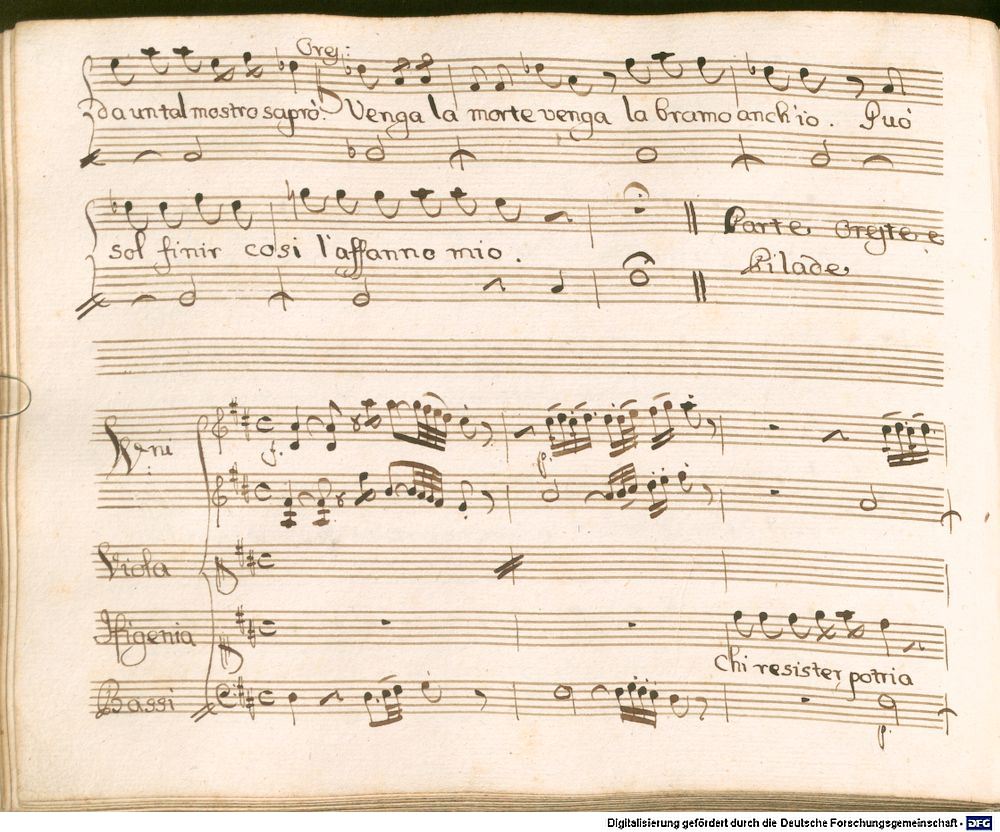 Ores:
da un tal mostro saprò. Venga la morte venga la bramo anch'io. Può
sol finir così l'affanno mio.
Parte Oreste e
Pilade
f. p.
Viola
Ifigenia
Chi resister potria
Bassi
p.
Digitalisierung gefördert durch die Deutsche Forschungsgemeinschaft - DFG